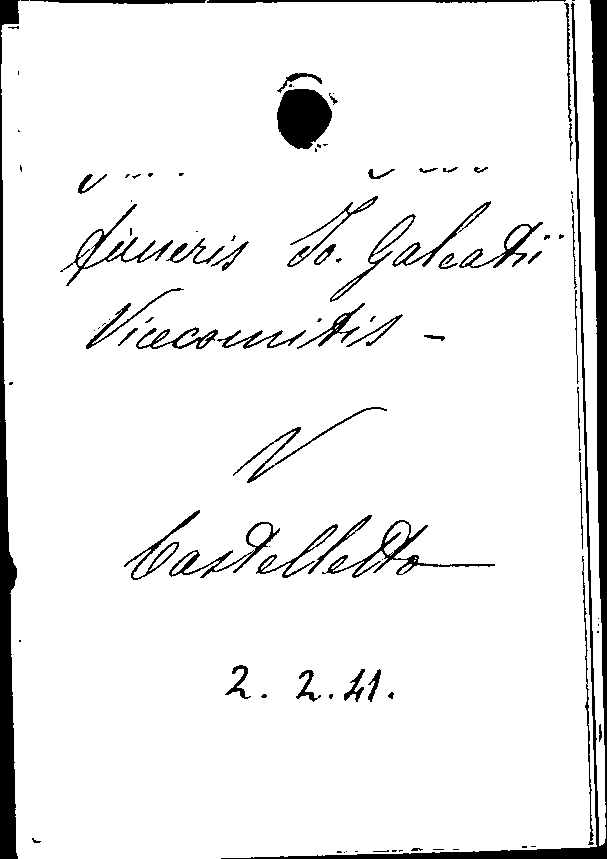 funeris Jo. Galeatii
Vicecomitis -
V
Castelletto
2. 2. 41.